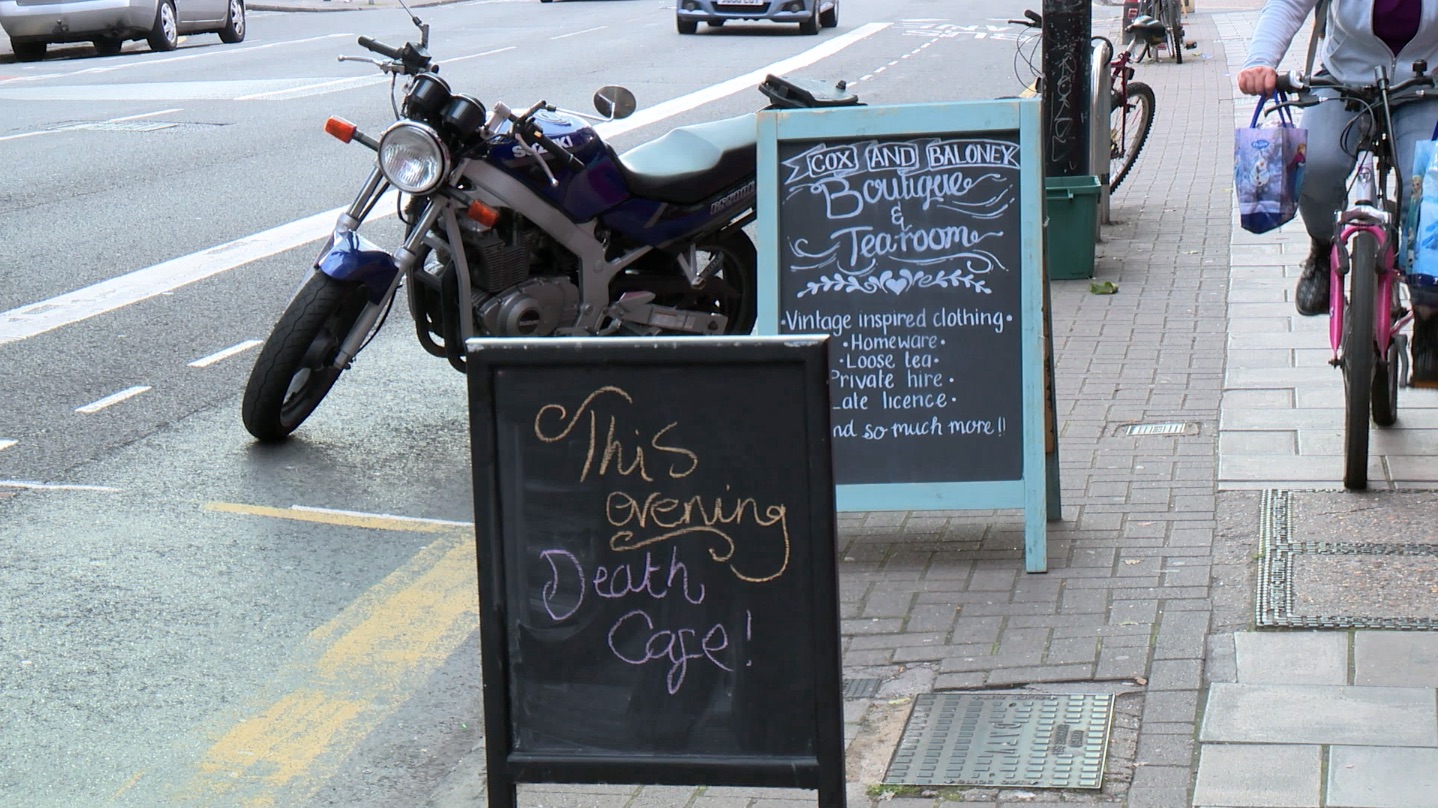 SUZUKI
COX AND BALONEY
Boutique
&
Tearoom
•Vintage inspired clothing•
•Homeware•
•Loose tea•
Private hire•
Late licence•
and so much more!!
This
evening
Death
Cafe!